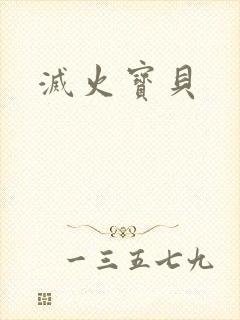 滅火寶貝
一三五七九